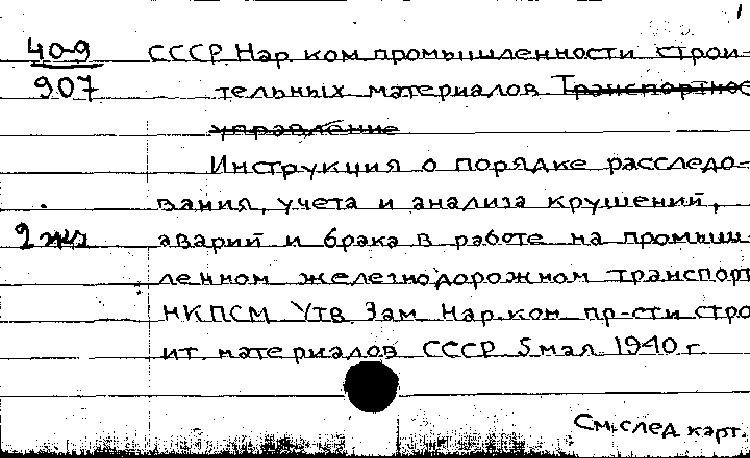 1
40-9 СССР. Нар. ком. промышленности строи-
907 тельных материалов. Транспортное
управление
Инструкция о порядке расследо-
вания, учета и анализа крушений,
аварий и брака в работе на промыш-
ленном железнодорожном транспорт
НКПСМ. Утв. Зам. Нар. ком. пр-сти стро
ит. материалов СССР 5 мая 1940 г.
См. след. карт.